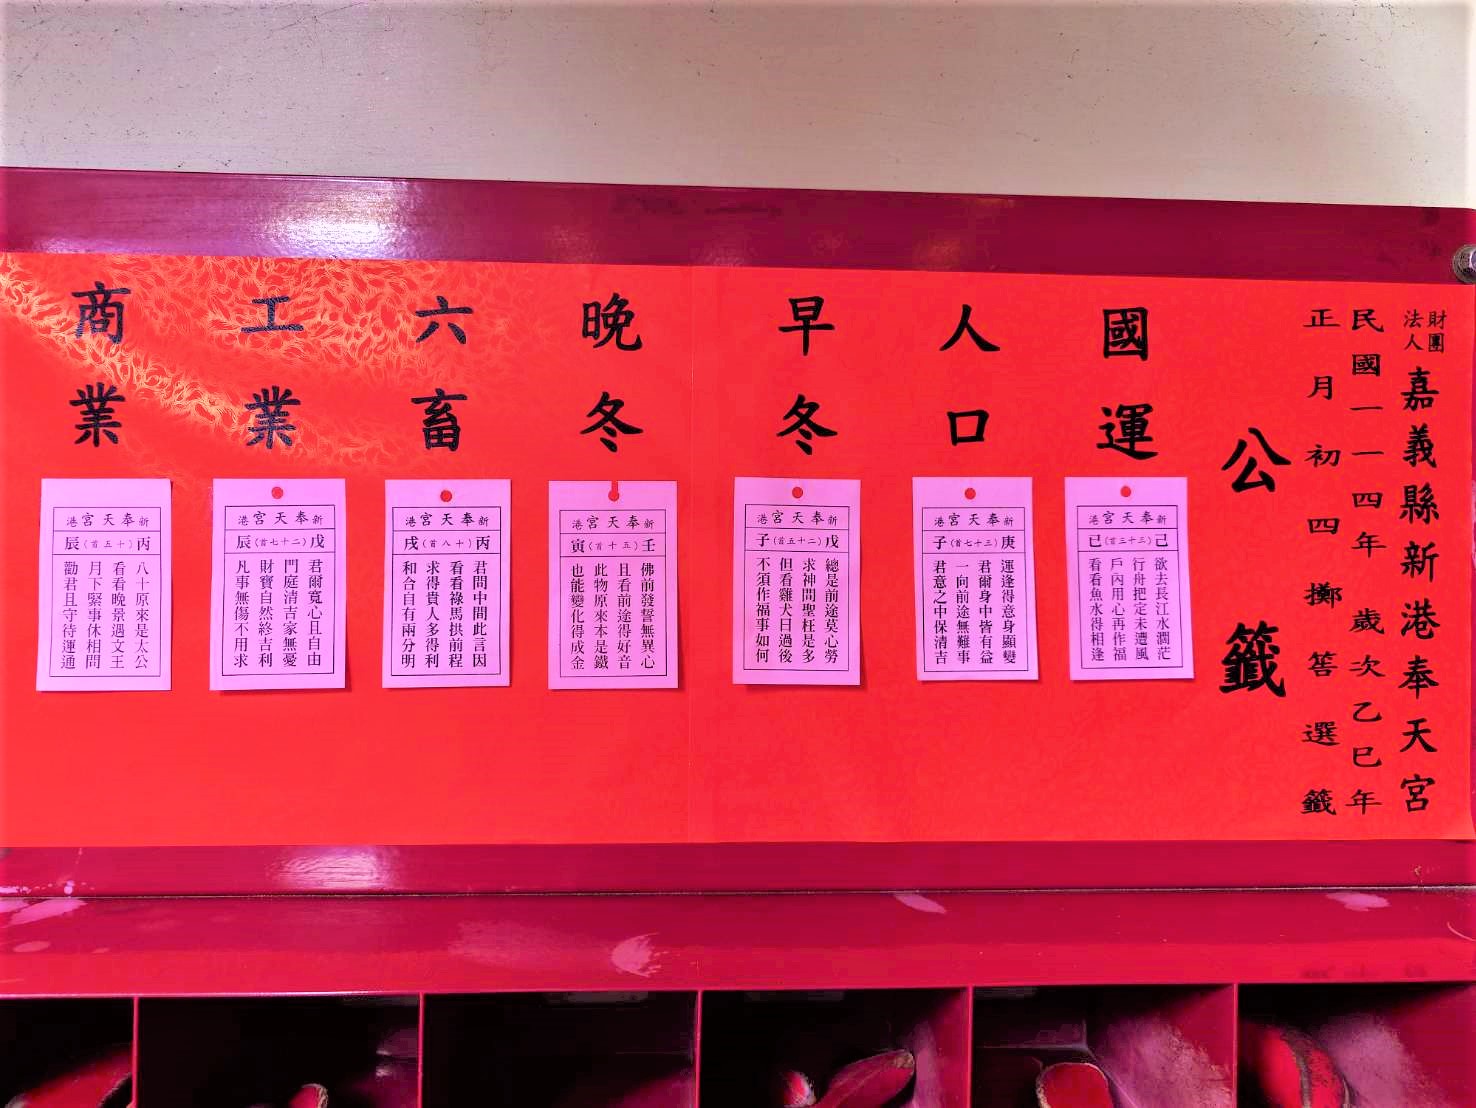 財團
法人
嘉義縣新港奉天宮
民國一一四年歲次乙巳年
正月初四擲筶選籤
公籤
國運
新奉天宮港
己(三十三首)巳
欲去長江水濶茫
行舟把定未遭風
戶內用心再作福
看看魚水得相逢
人口
新奉天宮港
庚(三十七首)子
運逢得意身顯變
君爾身中皆有益
一向前途無難事
君意之中保清吉
早冬
新奉天宮港
戊(二十五首)子
總是前途莫心勞
求神問聖枉是多
但看雞犬日過後
不須作福事如何
晚冬
新奉天宮港
壬(五十首)寅
佛前發誓無異心
且看前途得好音
此物原來本是鐵
也能變化得成金
六畜
新奉天宮港
丙(十八首)戌
君問中間此言因
看看祿馬拱前程
求得貴人多得利
和合自有兩分明
工業
新奉天宮港
戊(二十七首)辰
君爾寬心且自由
門庭清吉家無憂
財寶自然終吉利
凡事無傷不用求
商業
新奉天宮港
丙(十五首)辰
八十原來是太公
看看晚景遇文王
月下緊事休相問
勸君且守待運通